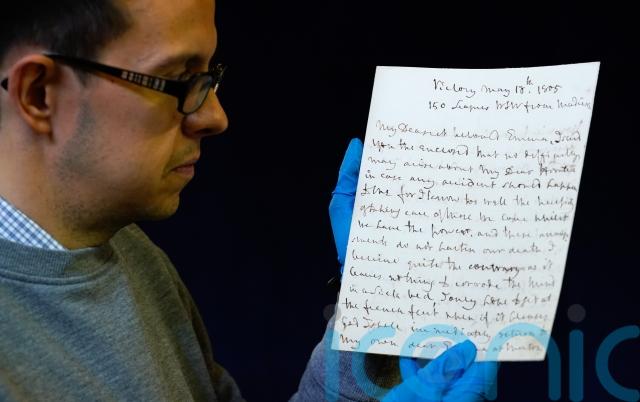 Victory May 18th. 1805
150 Leagues WSW from Madeira
My Dearest beloved Emma, I send
you the enclosed that no difficulty
may arise about My Dear Horatia
in case any accident should happen
to me for I know too well the necessity
of taking care of those we love whilst
we have the power, and these arrange
ments do not hasten our death I
believe quite the contrary as it
leaves nothing to corrode the mind
in a sick bed, I only hope to get at
the french fleet when if it pleases
God I shall immediately return to
My own dear at Merton
iconic